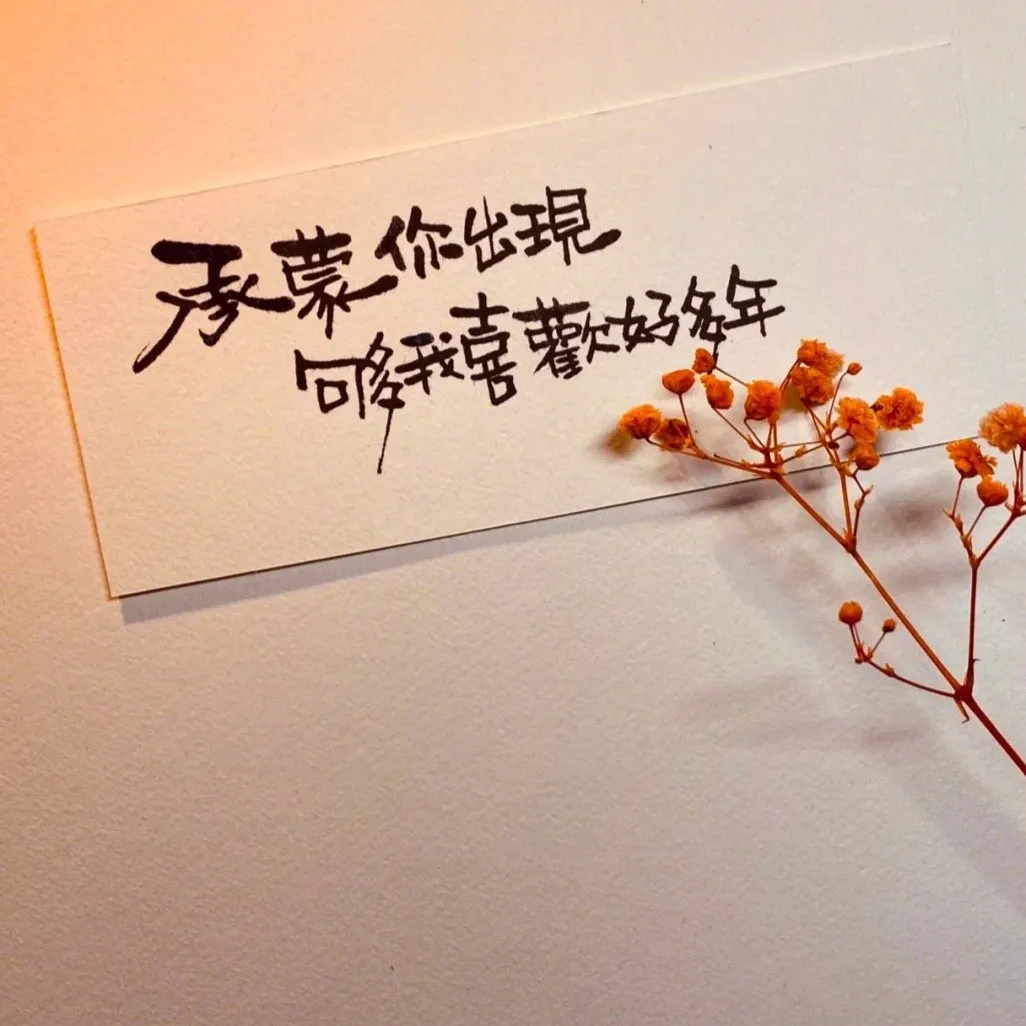 承蒙你出現
够我喜歡好多年